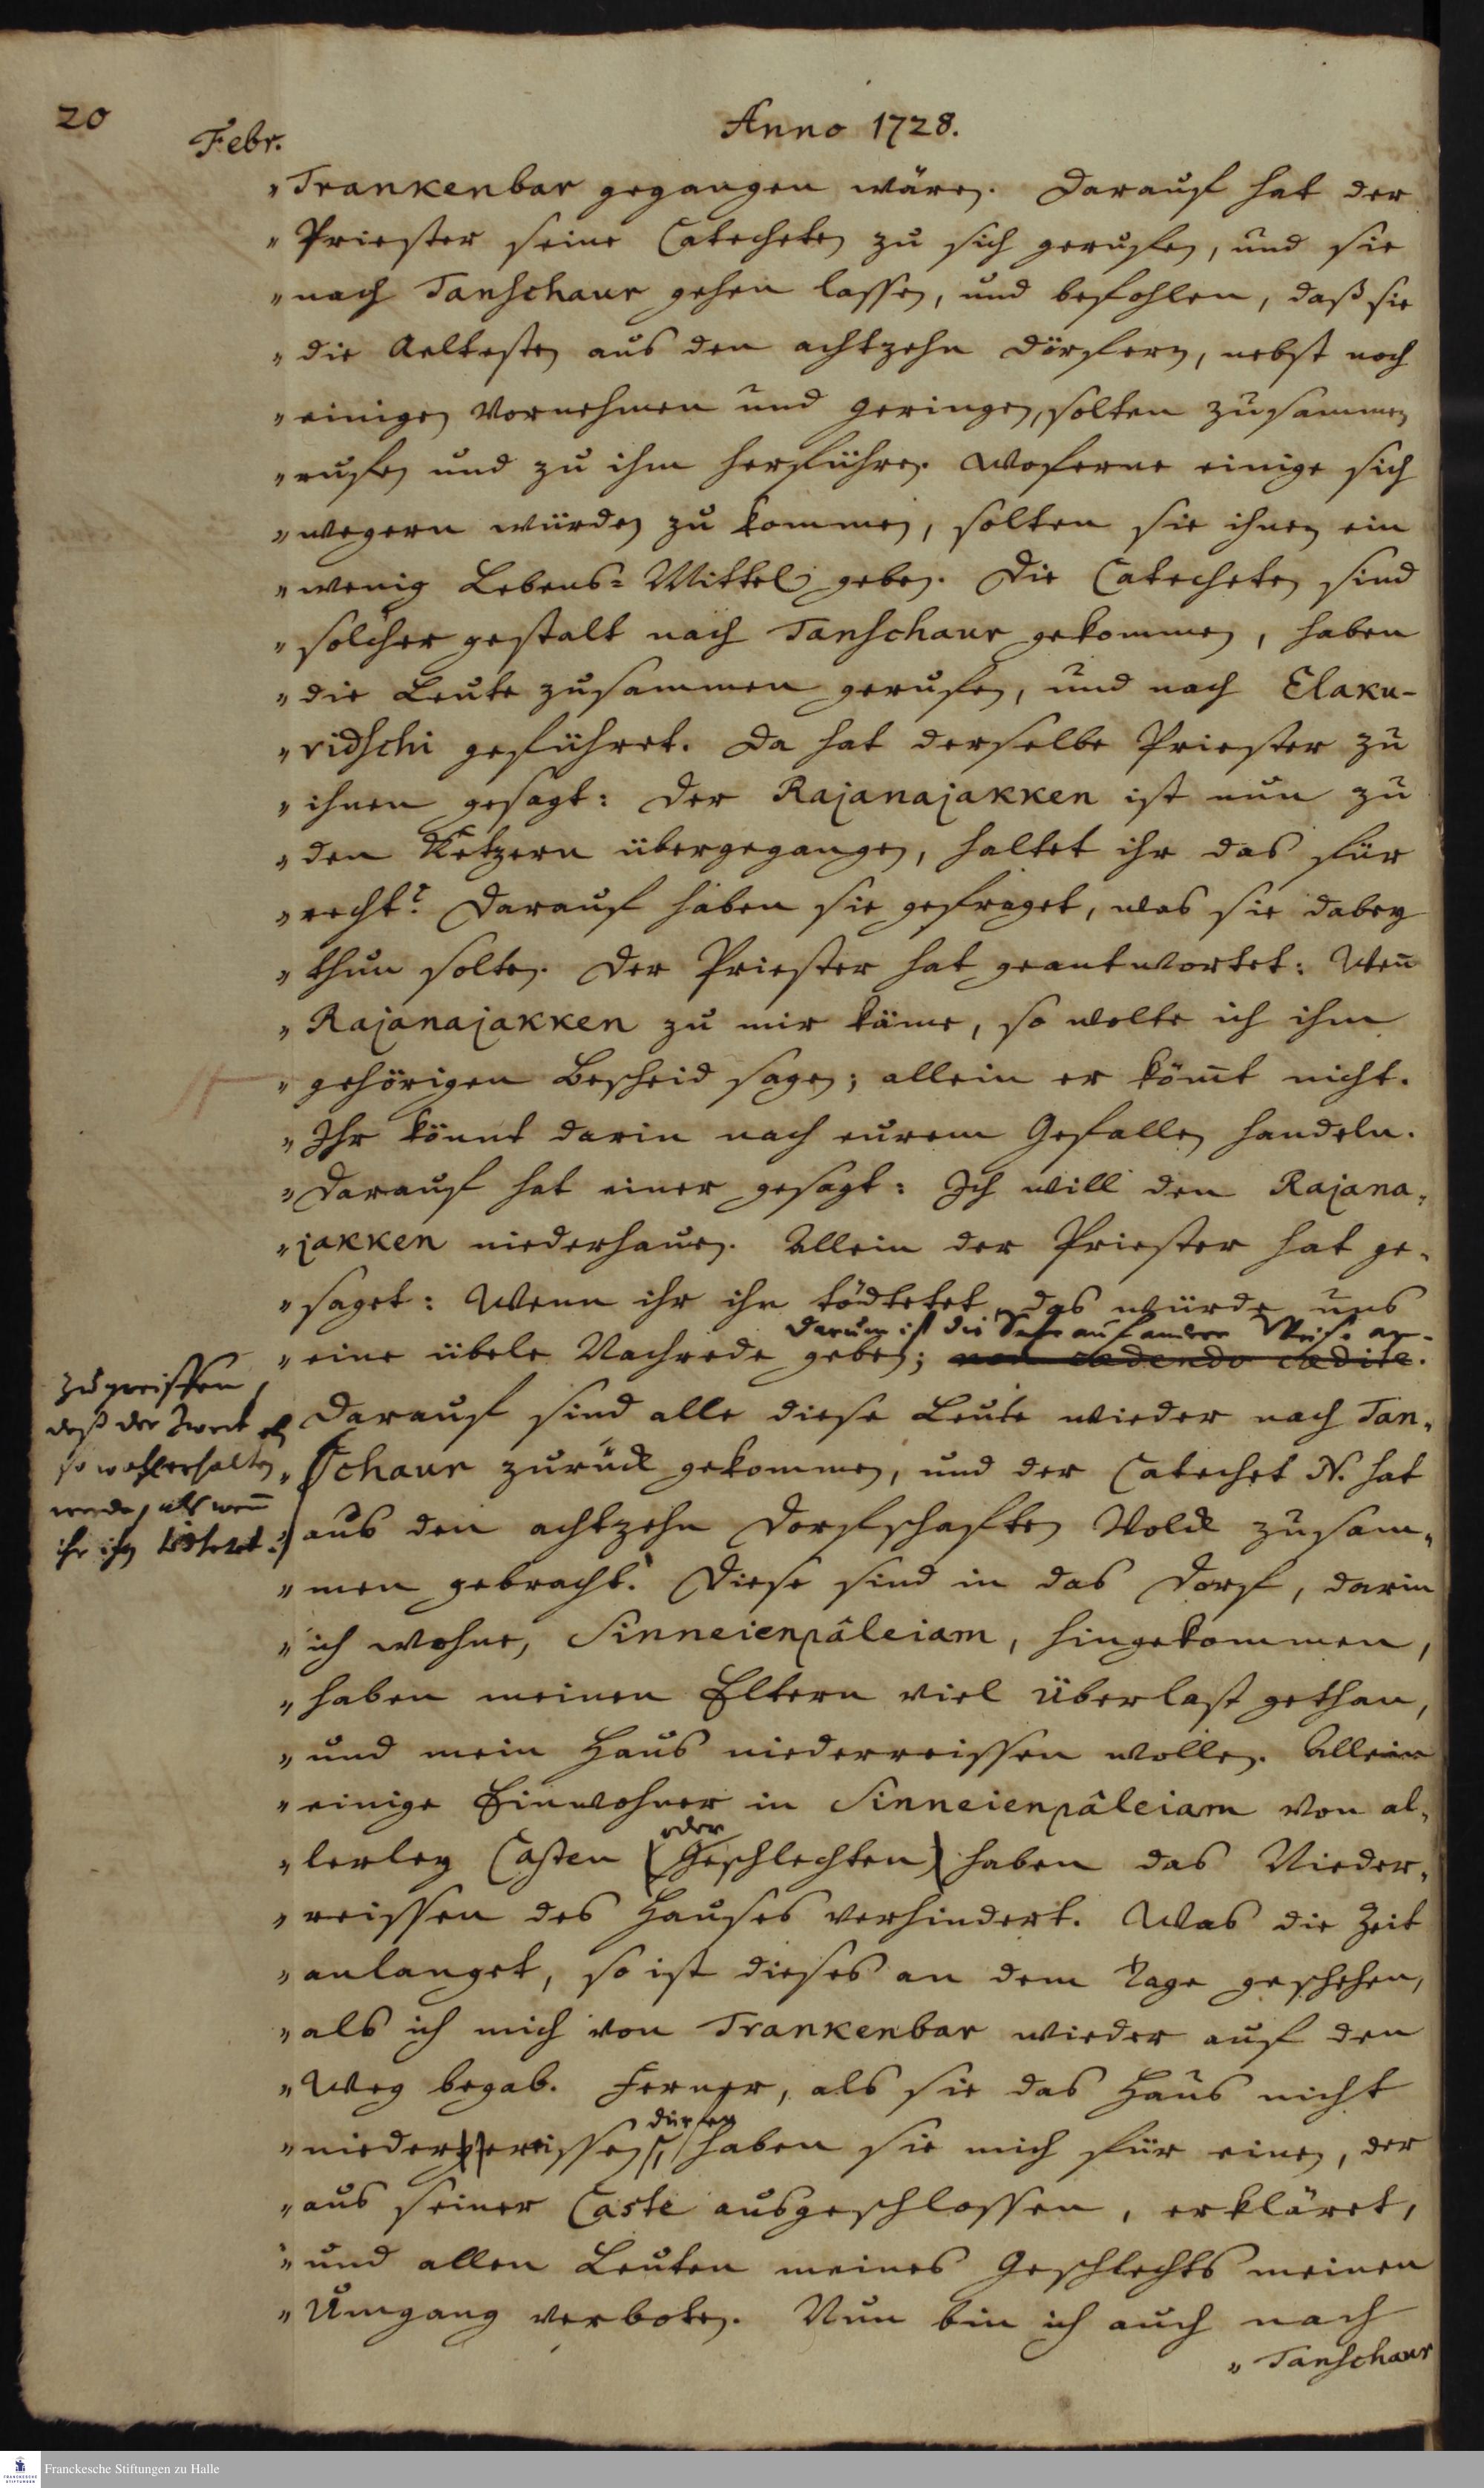 20
Febr.
Anno 1728.
" Trankenbar gegangen wäre. Darauf hat der
" Priester seine Catecheten zu sich gerufen, und sie
" nach Tanschaur gehen lassen, und befohlen, daß sie
" die Aeltesten aus den achtzehn Dörfern, nebst noch
" einigen Vornehmen und Geringen, solten zusammen
" rufen und zu ihm herführen. Woferne einige sich
" wegern würden zu kommen, solten sie ihnen ein
" wenig Lebens-Mittel geben. Die Catecheten sind
" solcher gestalt nach Tanschaur gekommen, haben
" die Leute zusammen gerufen, und nach Elaku-
" ridschi geführet. Da hat derselbe Priester zu
" ihnen gesagt: Der Rajanajakken ist nun zu
" den Ketzern übergegangen, haltet ihr das für
" recht? Darauf haben sie gefraget, was sie dabey
" thun solten. Der Priester hat geantwortet: Weñ
" Rajanajakken zu mir käme, so wolte ich ihm
" gehörigen Bescheid sagen; allein er köm̃t nicht.
" Ihr könnt darin nach eurem Gefallen handeln.
" Darauf hat einer gesagt: Ich will den Rajana-
" jakken niederhauen. Allein der Priester hat ge-
" saget: Wenn ihr ihn tödtetet, das würde uns
darum ist die Sache auf andere Weise an-
" eine übele Nachrede geben; non cædendo cædite.
zugreiffen,
daß der Zweck eben
so wohl erhalten
werde, als weñ
ihr ihn tödtetet.
Darauf sind alle diese Leute wieder nach Tan-
" schaur zurück gekommen, und der Catechet N. hat
" aus den achtzehn Dorfschaften Volck zusam-
" men gebracht. Diese sind in das Dorf, darin
" ich wohne, Sinneienpâleiam, hingekommen,
" haben meinen Eltern viel Überlast gethan,
" und mein Haus niederreissen wollen. Allein
" einige Einwohner in Sinneienpâleiam von al-
oder
" lerley Casten (Geschlechten) haben das Nieder-
" reissen des Hauses verhindert. Was die Zeit
" anlanget, so ist dieses an dem Tage geschehen,
" als ich mich von Trankenbar wieder auf den
" Weg begab. Ferner, als sie das Haus nicht
dürfen
" niederreissen, haben sie mich für einen, der
" aus seiner Caste ausgeschlossen, erkläret,
" und allen Leuten meines Geschlechts meinen
" Umgang verboten. Nun bin ich auch nach
" Tanschaur
Franckesche Stiftungen zu Halle